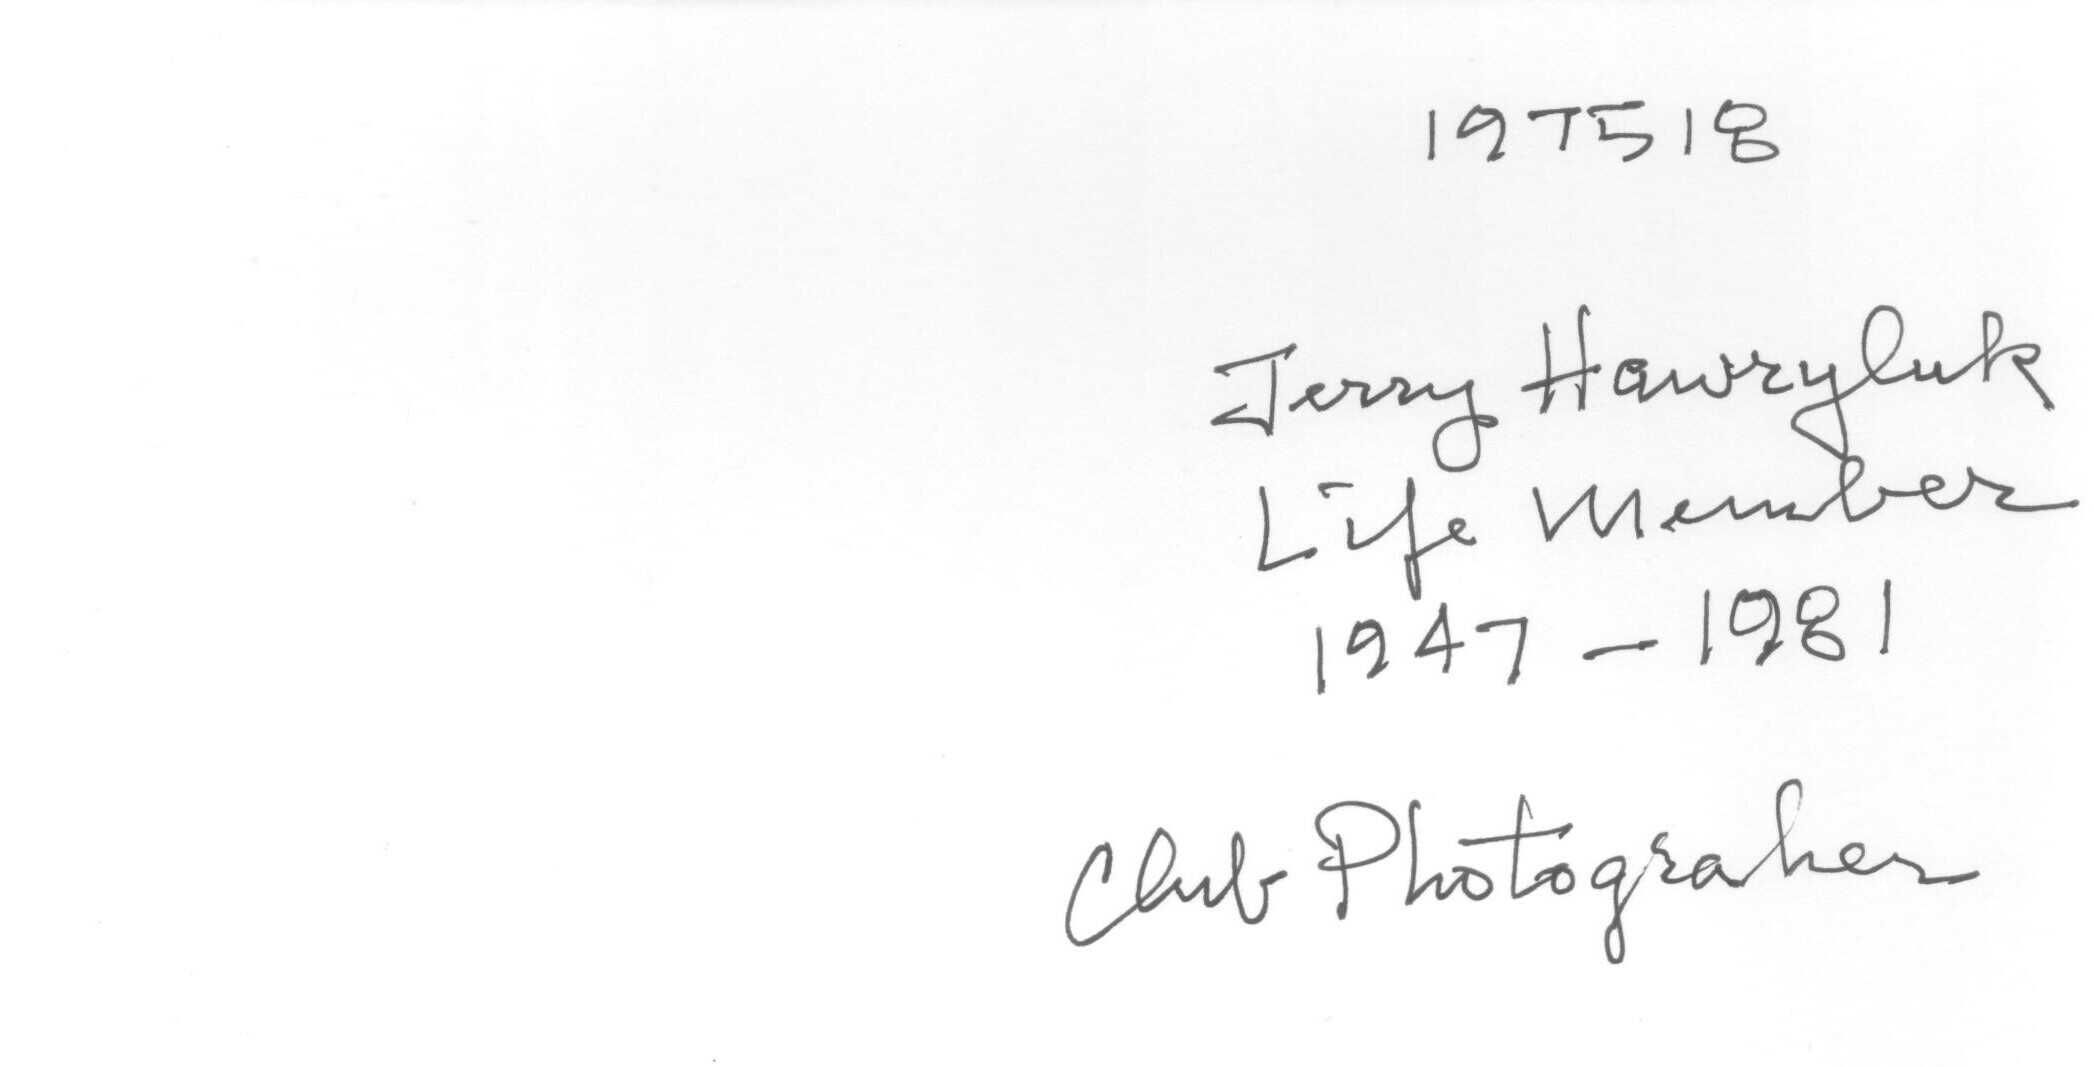 197518
Jerry Hawryluk
Life Member
1947 - 1981
Club Photograher